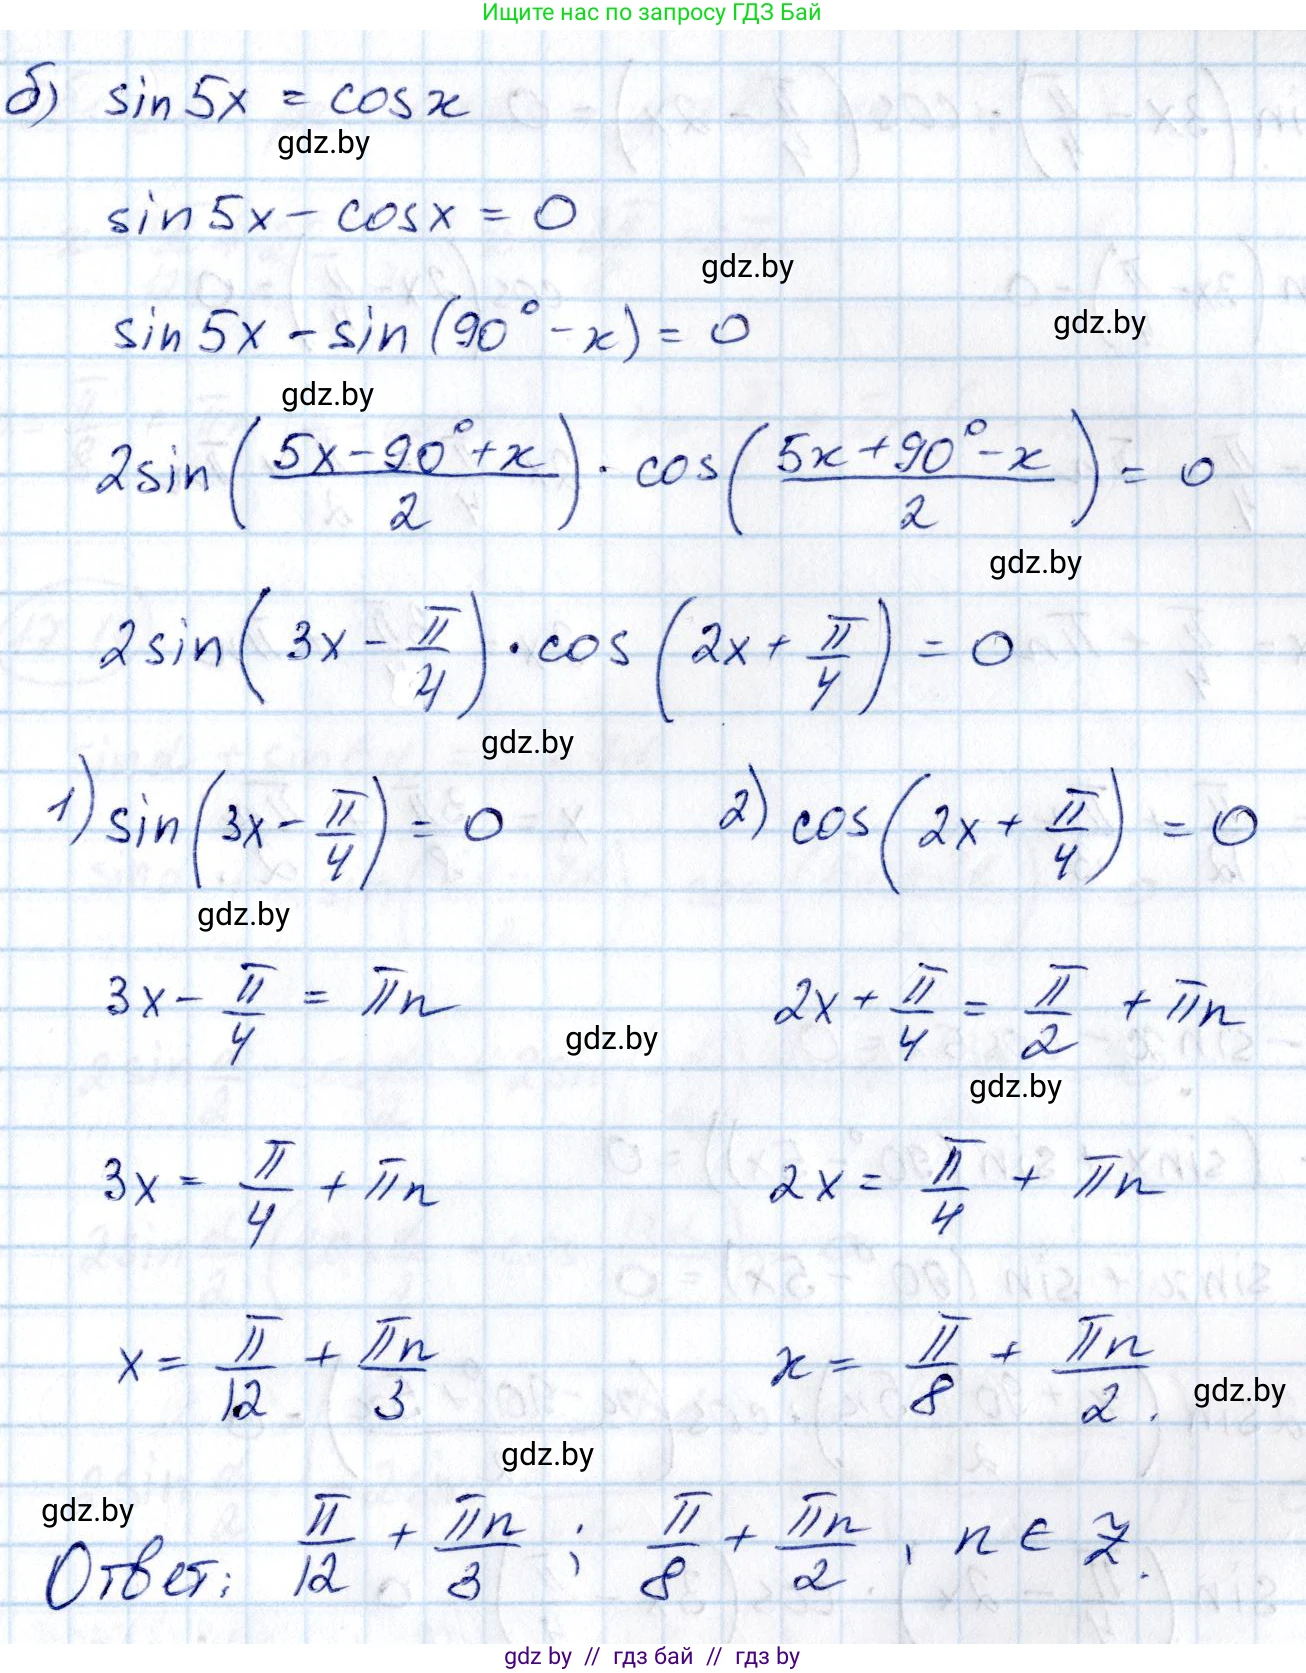 Ищите нас по запросу ГДЗ Бай
б) sin 5x = cos x
gdz.by
sin 5x - cos x = 0
gdz.by
sin 5x - sin (90° - x) = 0
gdz.by
gdz.by
2 sin ((5x - 90° + x)/2) · cos ((5x + 90° - x)/2) = 0
gdz.by
2 sin (3x - π/4) · cos (2x + π/4) = 0
gdz.by
1) sin (3x - π/4) = 0 2) cos (2x + π/4) = 0
gdz.by
3x - π/4 = πn 2x + π/4 = π/2 + πn
gdz.by
gdz.by
3x = π/4 + πn 2x = π/4 + πn
x = π/12 + πn/3 x = π/8 + πn/2.
gdz.by
gdz.by
gdz.by
Ответ: π/12 + πn/3 ; π/8 + πn/2 , n ∈ Z.
gdz by // гдз бай // гдз by